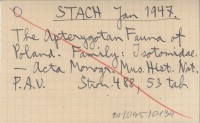 STACH Jan 1947.
The Apterygotan Fauna of
Poland. Family: Isotomidae.
— Acta Monogr. Mus. Hist. Nat.
P.A.U. Stron. 488, 53 tab